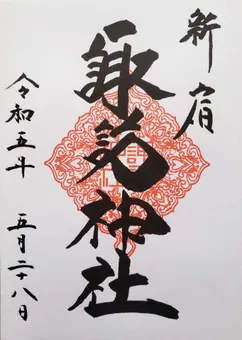 新宿
諏訪神社
令和五年 五月二十八日